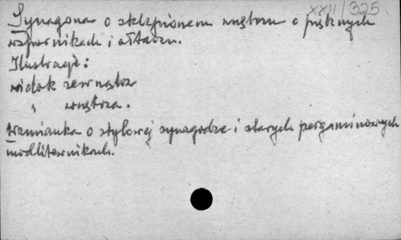 XXII/325
Synagoga o sklepionem wnętrzu o pięknych
wspornikach i ołtarzu.
Ilustracje:
widok zewnątrz
" wnętrza.
Wzmianka o stylowej synagodze i starych pergaminowych
modlitewnikach.